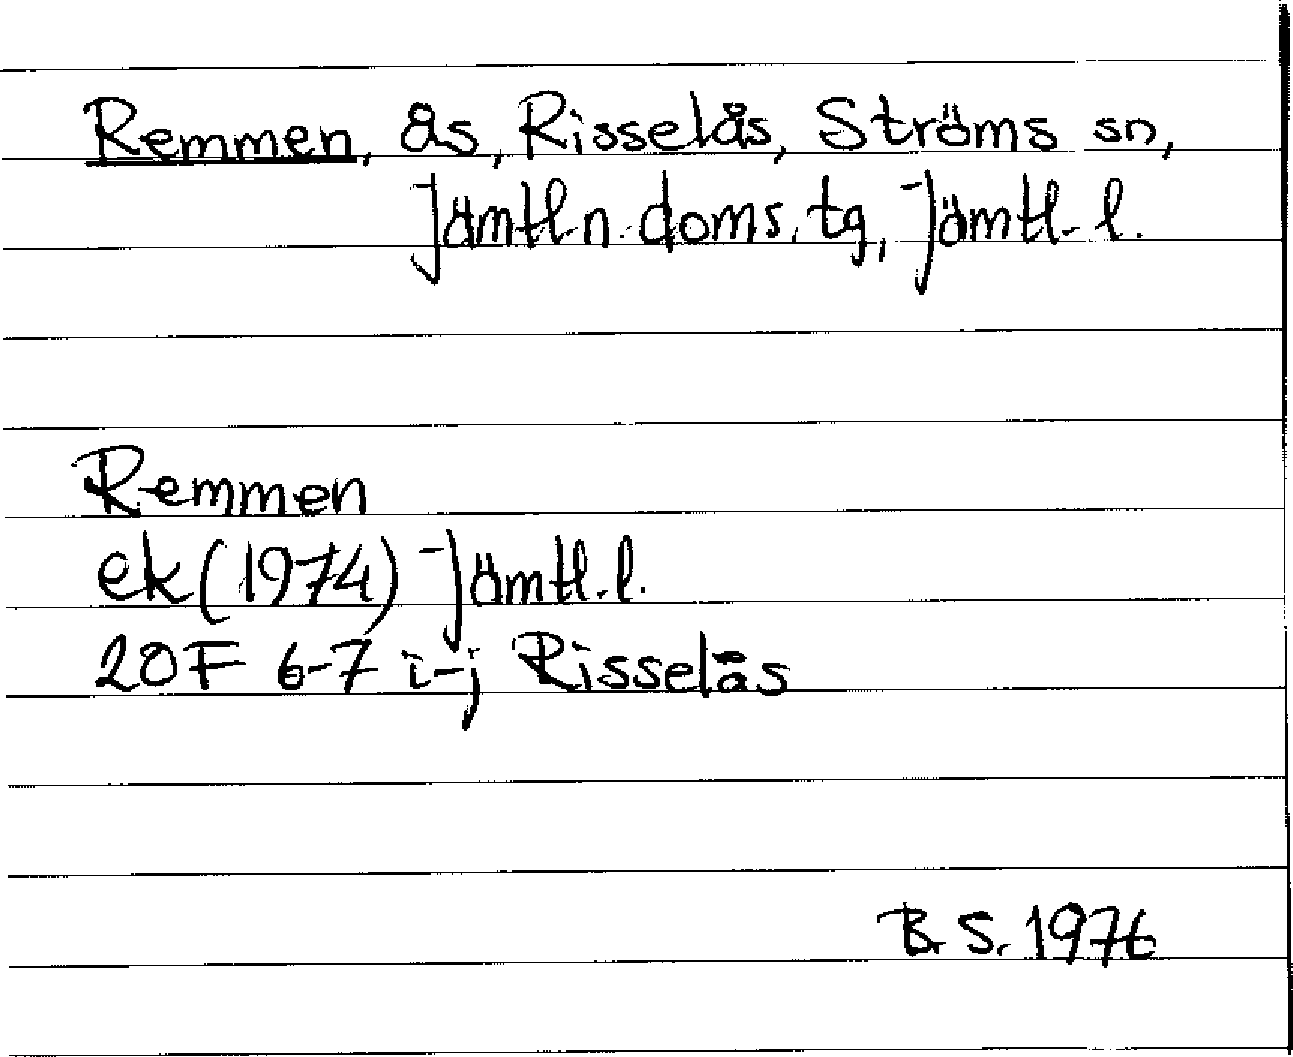 Remmen, ås, Risselås, Ströms sn,
Jämtl. n. doms. tg, Jämtl. l.
Remmen
ek (1974) Jämtl. l.
20F 6-7 i-j Risselås
B.S. 1976